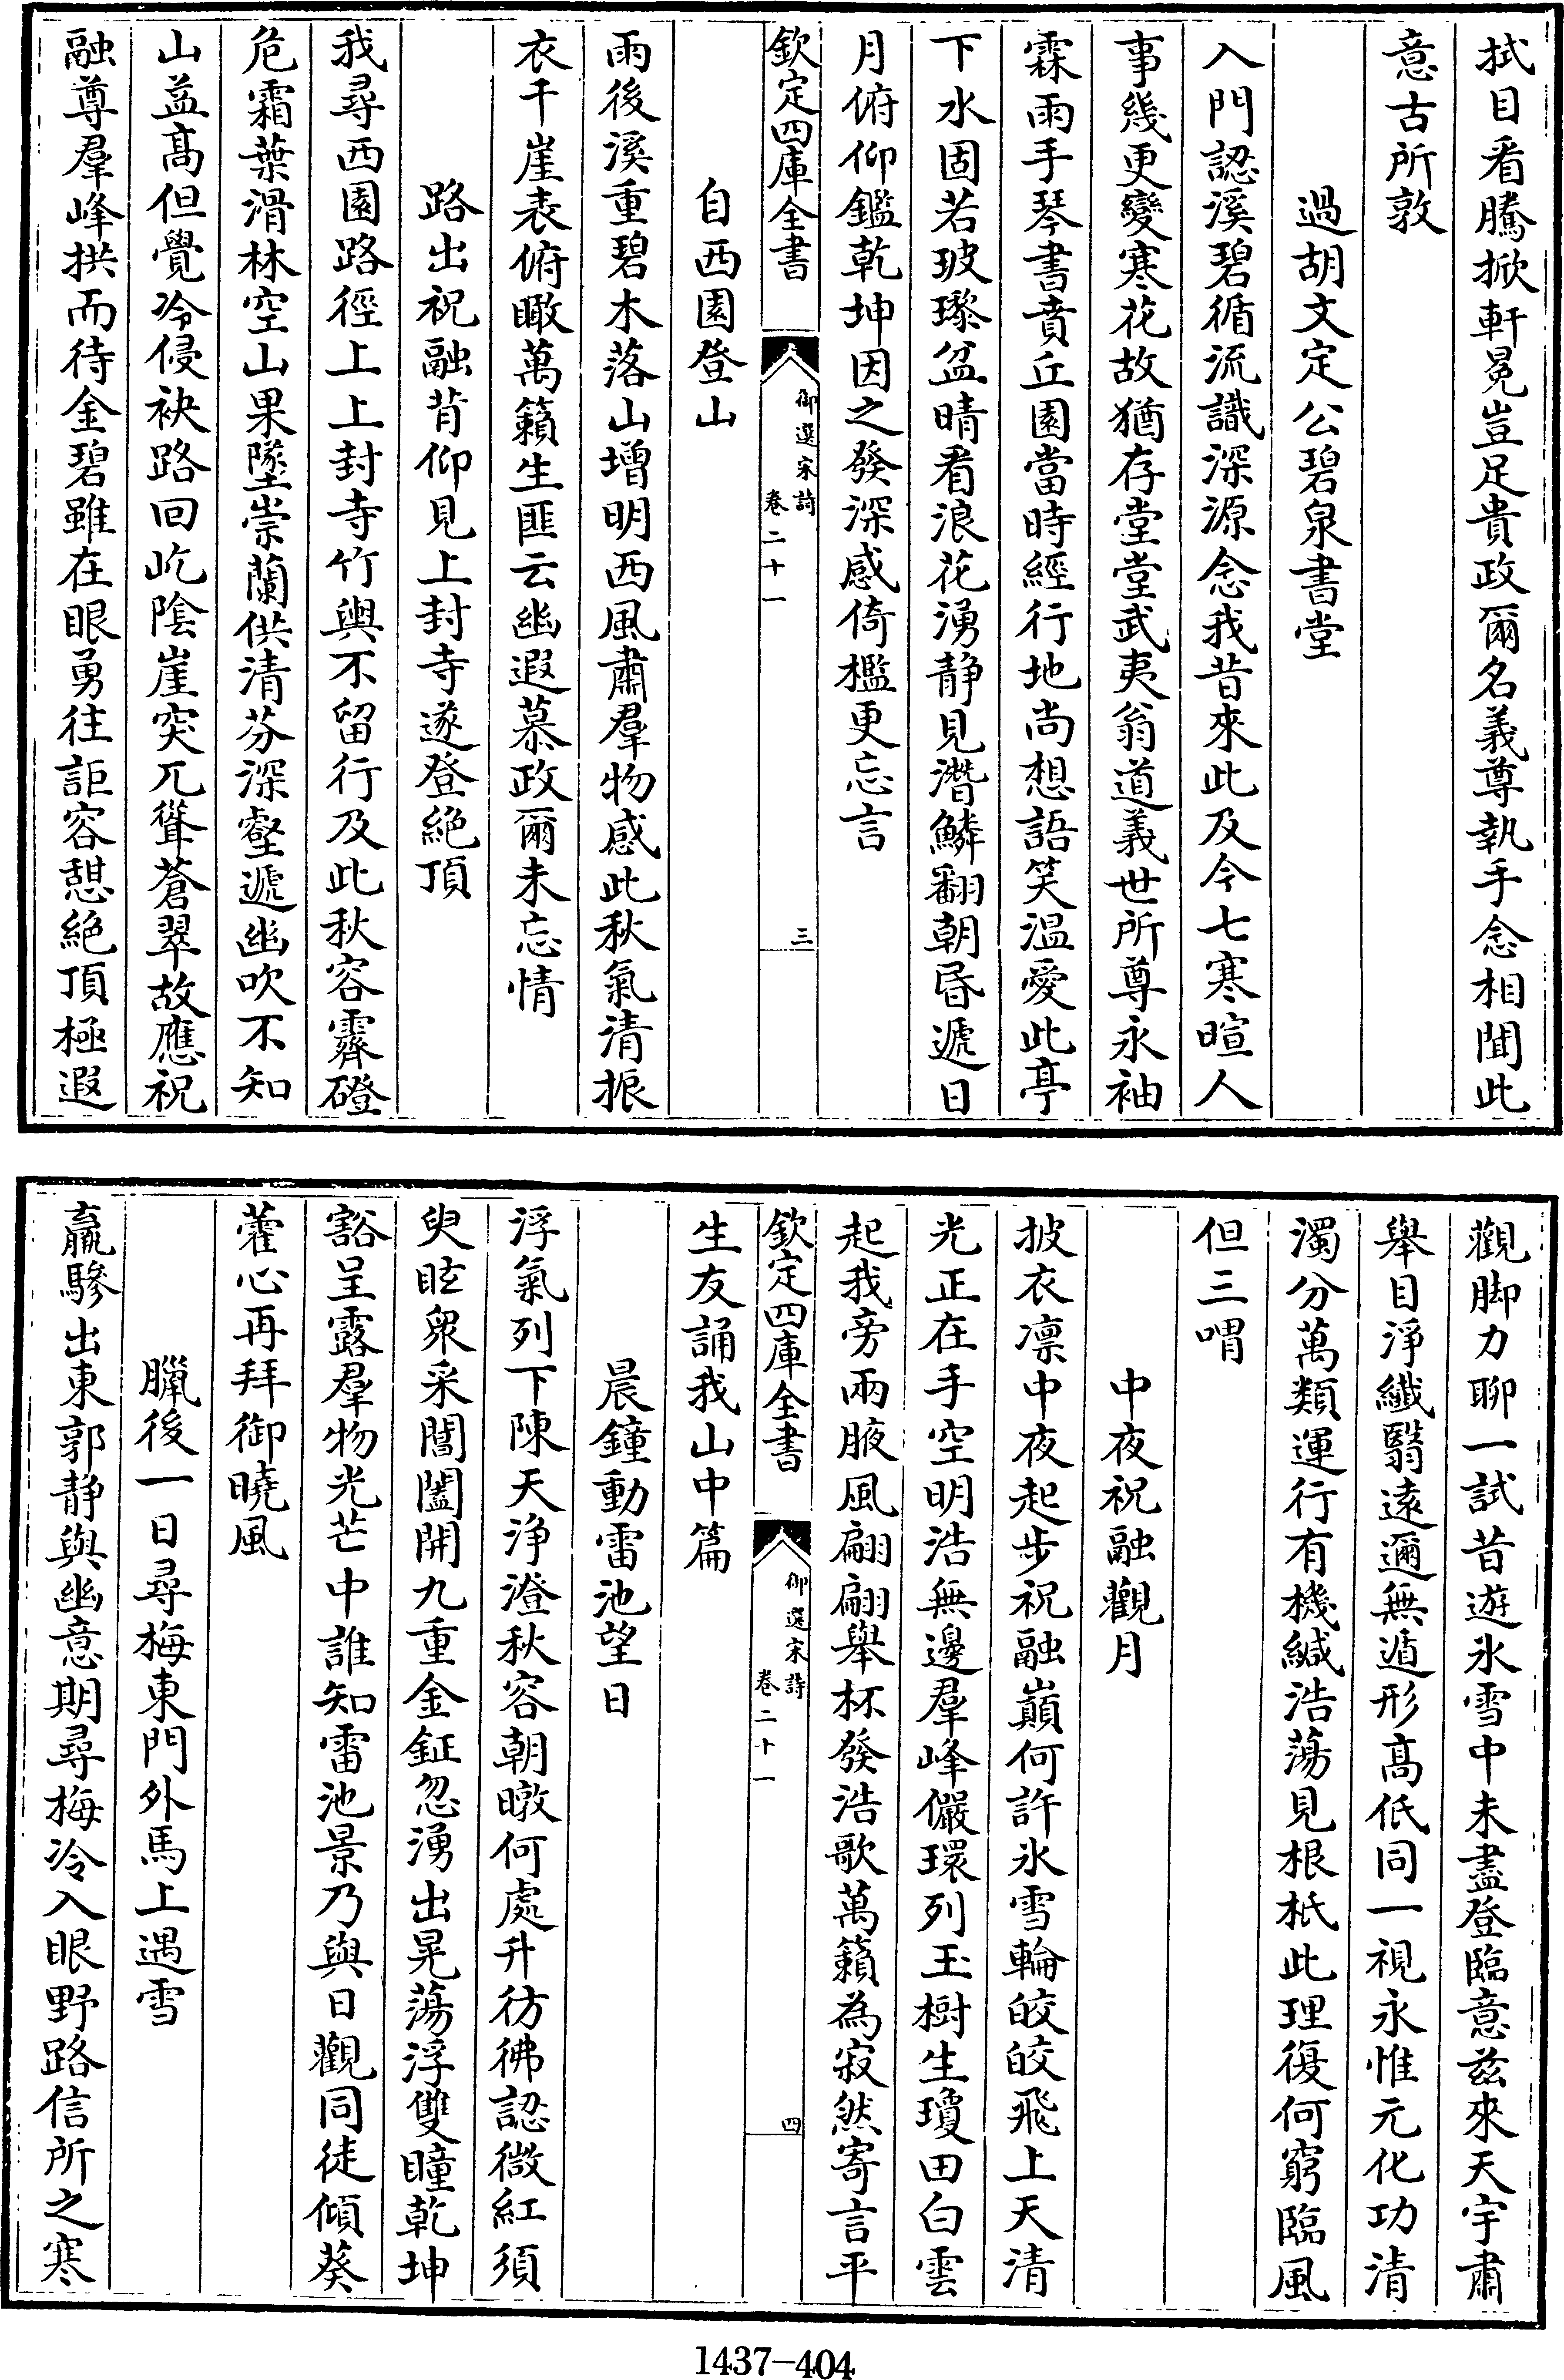 拭目看騰掀軒冕豈足貴政爾名義尊執手念相聞此
意古所敦
過胡文定公碧泉書堂
入門認溪碧循流識深源念我昔來此及今七寒暄人
事幾更變寒花故猶存堂堂武夷翁道義世所尊永袖
霖雨手琴書賁丘園當時經行地尚想語笑溫愛此亭
下水固若玻瓈盆晴看浪花湧静見潛鱗翻朝昏遞日
月俯仰鑑乾坤因之發深感倚檻更忘言
欽定四庫全書
御選宋詩
卷二十一
三
自西園登山
雨後溪重碧木落山增明西風肅羣物感此秋氣清振
衣千崖表俯瞰萬籟生匪云幽遐慕政爾未忘情
路出祝融背仰見上封寺遂登絶頂
我尋西園路徑上上封寺竹輿不留行及此秋容霽磴
危霜葉滑林空山果墜崇蘭供清芬深壑遞幽吹不知
山益髙但覺冷侵袂路回屹陰崖突兀聳蒼翠故應祝
融尊羣峰拱而待金碧雖在眼勇往詎容憇絶頂極遐
觀脚力聊一試昔遊氷雪中未盡登臨意兹來天宇肅
舉目淨纎翳遠邇無遁形髙低同一視永惟元化功清
濁分萬類運行有機緘浩蕩見根柢此理復何窮臨風
但三喟
中夜祝融觀月
披衣凛中夜起步祝融巔何許氷雪輪皎皎飛上天清
光正在手空明浩無邊羣峰儼環列玉樹生瓊田白雲
起我旁兩腋風翩翩舉杯發浩歌萬籟為寂然寄言平
欽定四庫全書
御選宋詩
卷二十一
四
生友誦我山中篇
晨鐘動雷池望日
浮氣列下陳天浄澄秋容朝暾何處升彷彿認微紅須
臾眩衆采閶闔開九重金鉦忽湧出晃蕩浮雙瞳乾坤
豁呈露羣物光芒中誰知雷池景乃與日觀同徒傾葵
藿心再拜御曉風
臘後一日尋梅東門外馬上遇雪
羸驂出東郭静與幽意期尋梅冷入眼野路信所之寒
1437-404